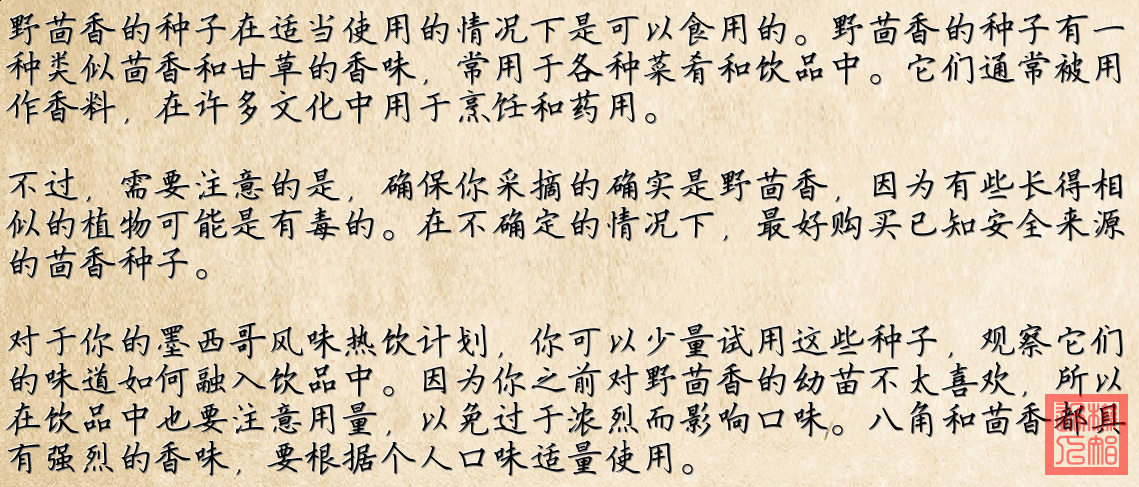 野茴香的种子在适当使用的情况下是可以食用的。野茴香的种子有一
种类似茴香和甘草的香味，常用于各种菜肴和饮品中。它们通常被用
作香料，在许多文化中用于烹饪和药用。
不过，需要注意的是，确保你采摘的确实是野茴香，因为有些长得相
似的植物可能是有毒的。在不确定的情况下，最好购买已知安全来源
的茴香种子。
对于你的墨西哥风味热饮计划，你可以少量试用这些种子，观察它们
的味道如何融入饮品中。因为你之前对野茴香的幼苗不太喜欢，所以
在饮品中也要注意用量，以免过于浓烈而影响口味。八角和茴香都具
有强烈的香味，要根据个人口味适量使用。